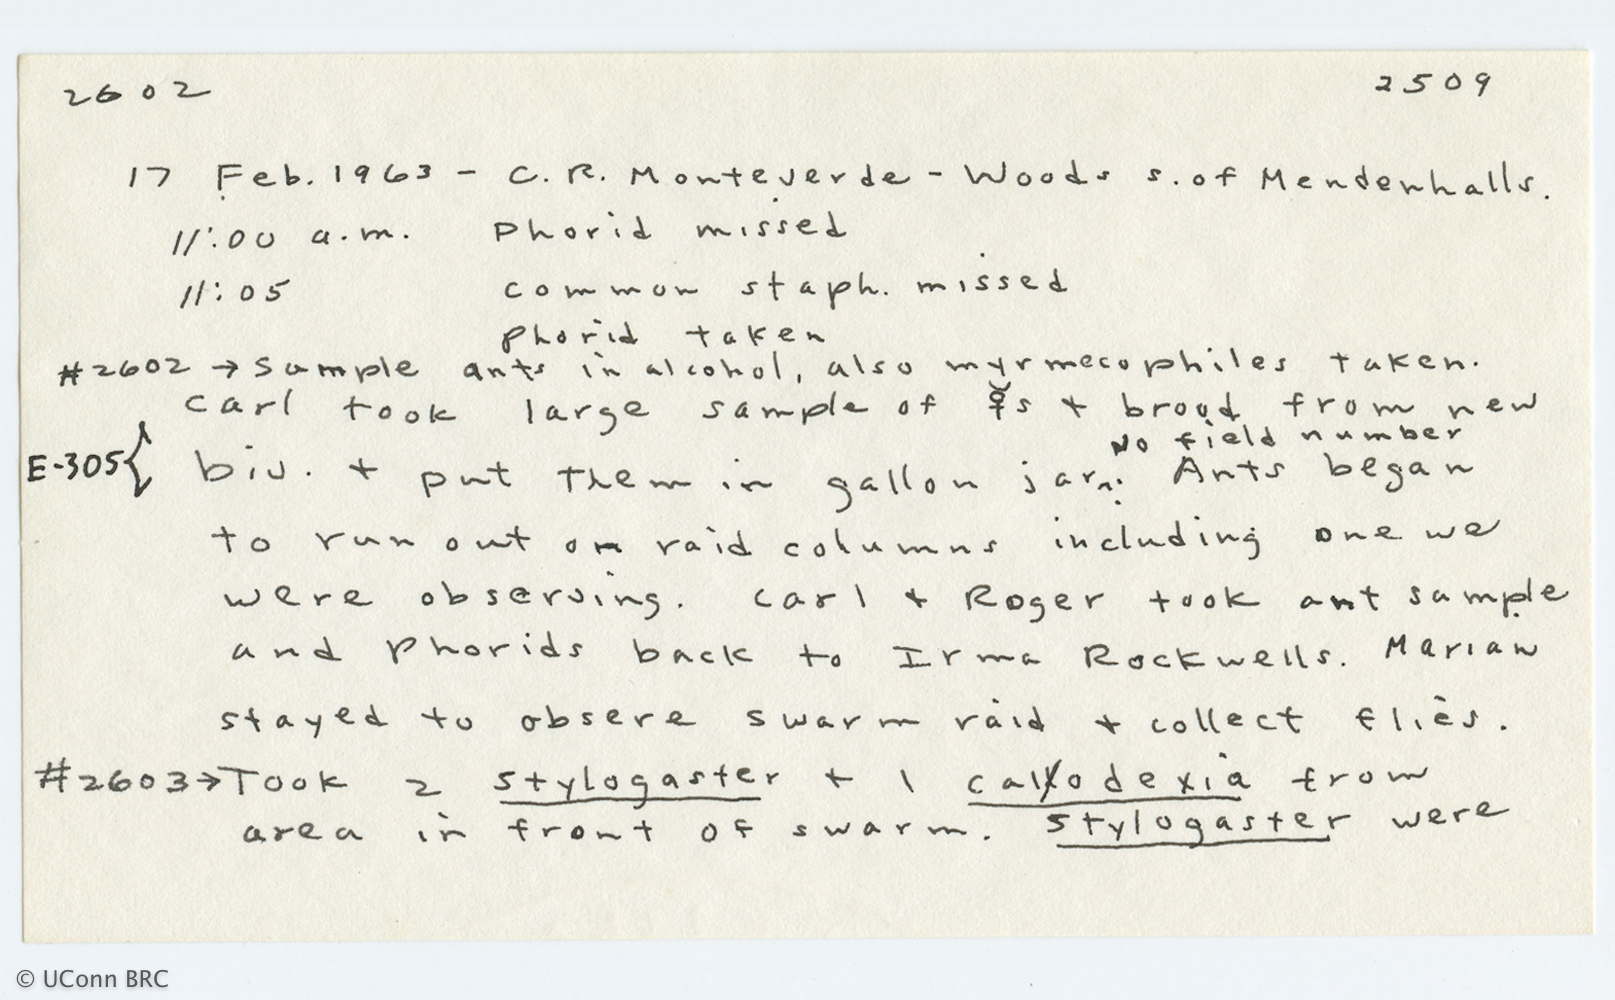 2602 2509
17 Feb. 1963 - C. R. Monteverde - Woods s. of Mendenhalls.
11:00 a.m. Phorid missed
11:05 common staph. missed
Phorid taken
#2602 → Sample ants in alcohol, also myrmecophiles taken.
Carl took large sample of ☿s + brood from new
No field number
E-305{ biv. + put them in gallon jar. Ants began
to run out on raid columns including one we
were observing. Carl + Roger took ant sample
and Phorids back to Irma Rockwells. Marian
stayed to obsere swarm raid + collect flies.
#2603 → Took 2 Stylogaster + 1 calodexia from
area in front of swarm. Stylogaster were
© UConn BRC